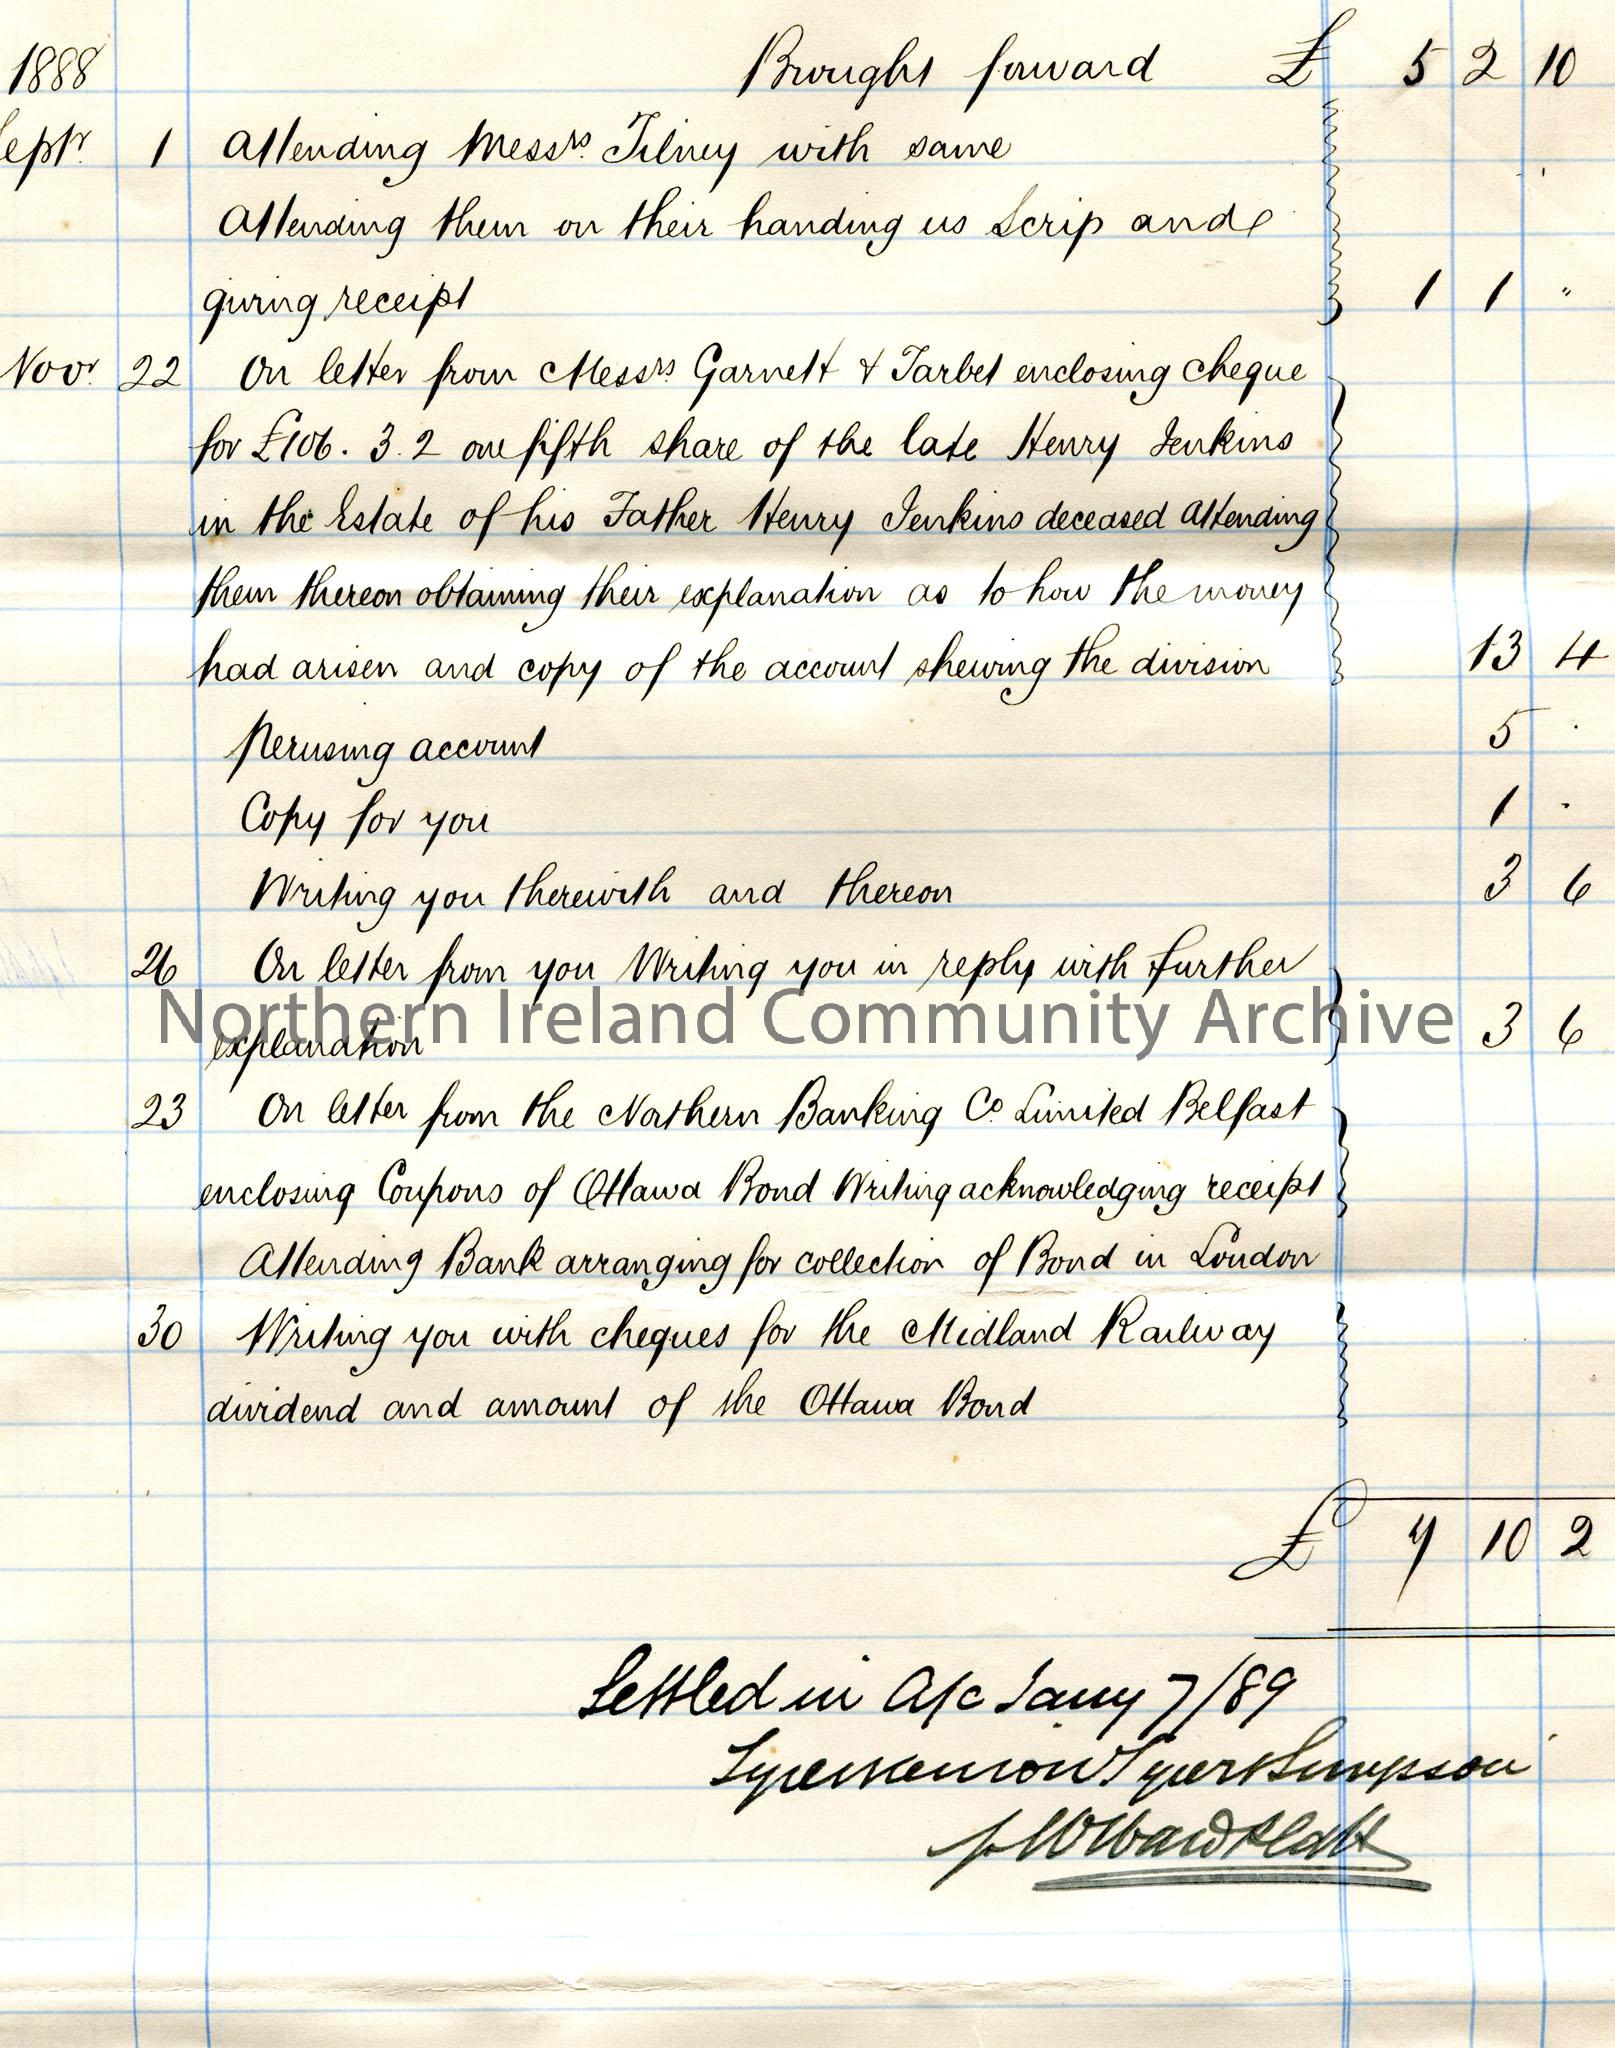 1888 Brought forward £ 5 2 10
Septr. 1 Attending Messrs. Tilney with same
Attending them on their handing us Scrip and
giving receipt 1 1 "
Novr. 22 On letter from Messrs Garnett & Tarbet enclosing cheque
for £106. 3. 2 one fifth share of the late Henry Jenkins
in the Estate of his Father Henry Jenkins deceased Attending
them thereon obtaining their explanation as to how the money
had arisen and copy of the account shewing the division 13 4
Perusing account 5 .
Copy for you 1 .
Writing you therewith and thereon 3 6
26 On letter from you Writing you in reply with further
Northern Ireland Community Archive
explanation 3 6
23 On letter from the Northern Banking Co. Limited Belfast
enclosing Coupons of Ottawa Bond Writing acknowledging receipt
Attending Bank arranging for collection of Bond in London
30 Writing you with cheques for the Midland Railway
dividend and amount of the Ottawa Bond
£ 7 10 2
Settled in A/c Jany 7/89
Simpson